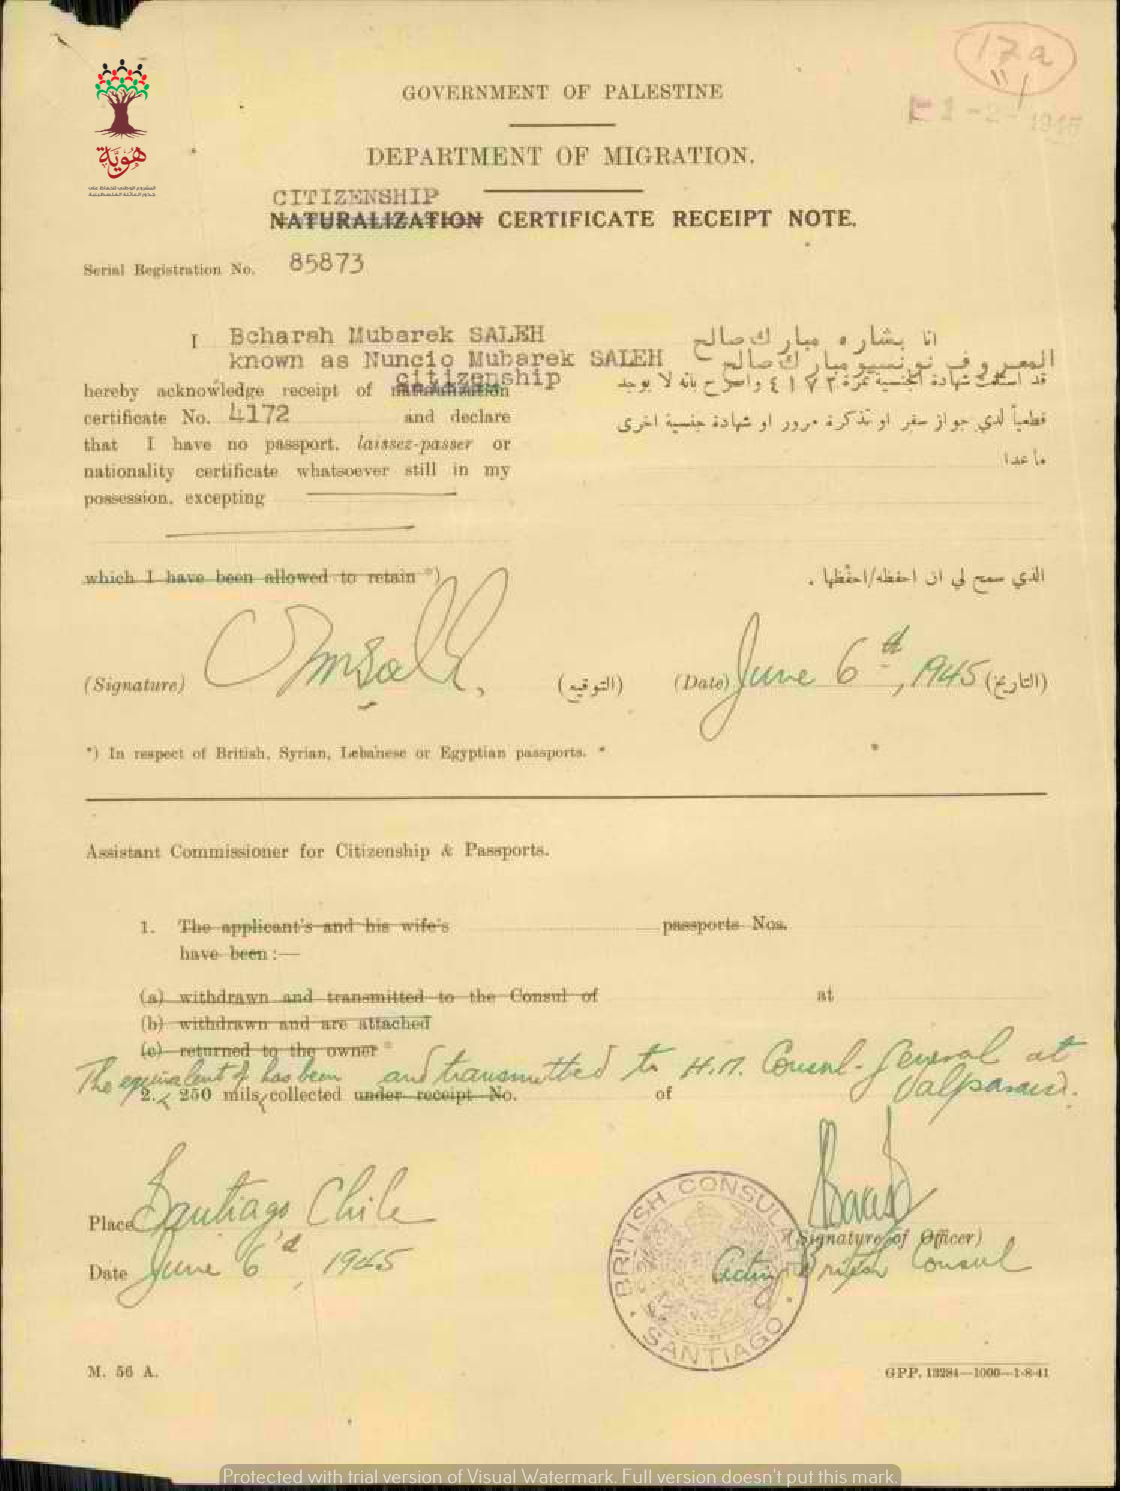 17a
2-2-1946
هوية
GOVERNMENT OF PALESTINE
DEPARTMENT OF MIGRATION.
CITIZENSHIP
NATURALIZATION CERTIFICATE RECEIPT NOTE.
Serial Registration No. 85873
I Bcharah Mubarek SALEH
known as Nuncio Mubarek SALEH
citizenship
hereby acknowledge receipt of naturalization
certificate No. 4172 and declare
that I have no passport, laissez-passer or
nationality certificate whatsoever still in my
possession, excepting
انا بشاره مبارك صالح
المعروف نونسيو مبارك صالح
قد استلمت شهادة الجنسية نمرة ٤١٧٢ واصرح بأنه لا يوجد
قطعياً لدي جواز سفر او تذكرة مرور او شهادة جنسية اخرى
ما عدا
which I have been allowed to retain *)
الذي سمح لي ان احفظه/احفظها .
(Signature) (التوقيع) (Date) June 6th, 1945 (التاريخ)
*) In respect of British, Syrian, Lebanese or Egyptian passports.
Assistant Commissioner for Citizenship & Passports.
1. The applicant's and his wife's passports Nos.
have been :—
(a) withdrawn and transmitted to the Consul of at
(b) withdrawn and are attached
(c) returned to the owner *
The equivalent of has been and transmitted to H.M. Consul-General at
Valparaiso.
2. 250 mils collected under receipt No. of
Place Santiago Chile
Date June 6d, 1945
(Signature of Officer)
Acting British Consul
BRITISH CONSULATE
SANTIAGO
M. 56 A.
GPP. 13284—1000—1-8-41
Protected with trial version of Visual Watermark. Full version doesn't put this mark.